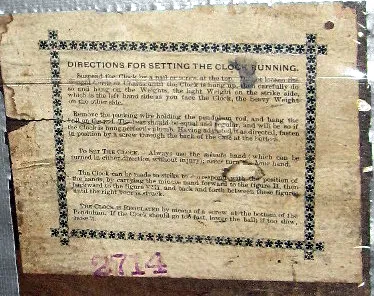 DIRECTIONS FOR SETTING THE CLOCK RUNNING.
Suspend the Clock by a nail or screw at the top
until the Clock is hung up, then carefully do
so and hang on the Weights, the light Weight on the strike side,
which is the left hand side as you face the Clock, the heavy Weight
on the other side.
Remove the packing wire holding the pendulum rod, and hang the
ball on the rod. The beat should be equal and regular, and will be so if
the Clock is hung perfectly plumb. Having adjusted it as directed, fasten
in position by a screw through the back of the case at the bottom.
TO SET THE CLOCK. Always use the minute hand which can be
turned in either direction without injury, never turn the hour hand.
The Clock can be made to strike to correspond with the position of
the hands by carrying the minute hand forward to the figure 12, then
backward to the figure and back and forth between these figures
until the right hour is struck.
THE CLOCK IS REGULATED by means of a screw at the bottom of the
Pendulum. If the Clock should go too fast, lower the ball; if too slow,
raise it.
2714